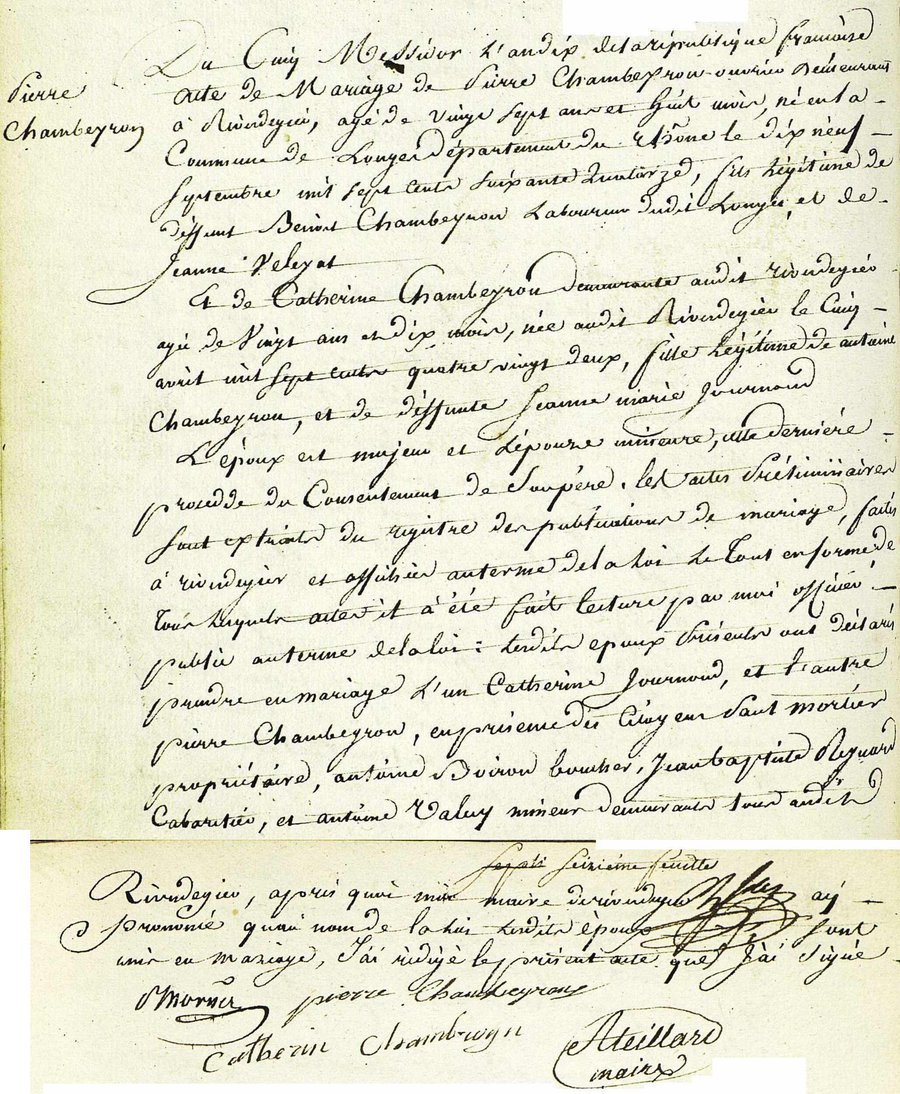 Pierre
Chambeyron
Du Cinq Messidor L'andix delarépublique francaise
Acte de Mariage de Pierre Chambeyron ouvrier demeurant
à Rivedegier, agé de vingt sept ans et huit mois, né en la
Commune de Longes département du Rhône le dix neuf
Septembre mil sept cents soixante quatorze, fils légitime de
déffunt Benoit Chambeyron Laboureur dudit Longes, et de
Jeanne Veleyat
Et de Catherine Chambeyron demeurante audit rivedegier
agée de Vingt ans et dix mois, née audit Rivedegier le Cinq
avril mil sept cents quatre vingt deux, fille légitime de antoine
Chambeyron, et de déffunte Jeanne marie Journoud
L'époux est majeur et L'épouze mineure, cette derniére
procedde du Consentement de Sonpére. les actes Préliminaires
sont extraits du registre des publications de mariage, faites
à rivedegier et affichées auterme dela loi Le Tout enforme de
Tous lesquels actes il à été fait lecture par moi officier
public auterme delaloi : lesdits epoux présents ont déclaré
prendre en mariage L'un Catherine Journoud, et l'autre
pierre Chambeyron, enprésence des Citoyens Paul mortier
propriétaire, antoine Boiron boucher, Jeanbaptiste Reynard
Cabaretier, et antoine Valuy mineur demeurants tous audit
seizième feuille
Rivedegier, aprés quoi moi maire derivedegier ay
prononcé quau nom de la loi lesdits époux sont
unis en mariage, J'ai rédigé le présent acte que J'ai Signé
pierre Chambeyron
Catherin Chambeyron
ATeillard
maire